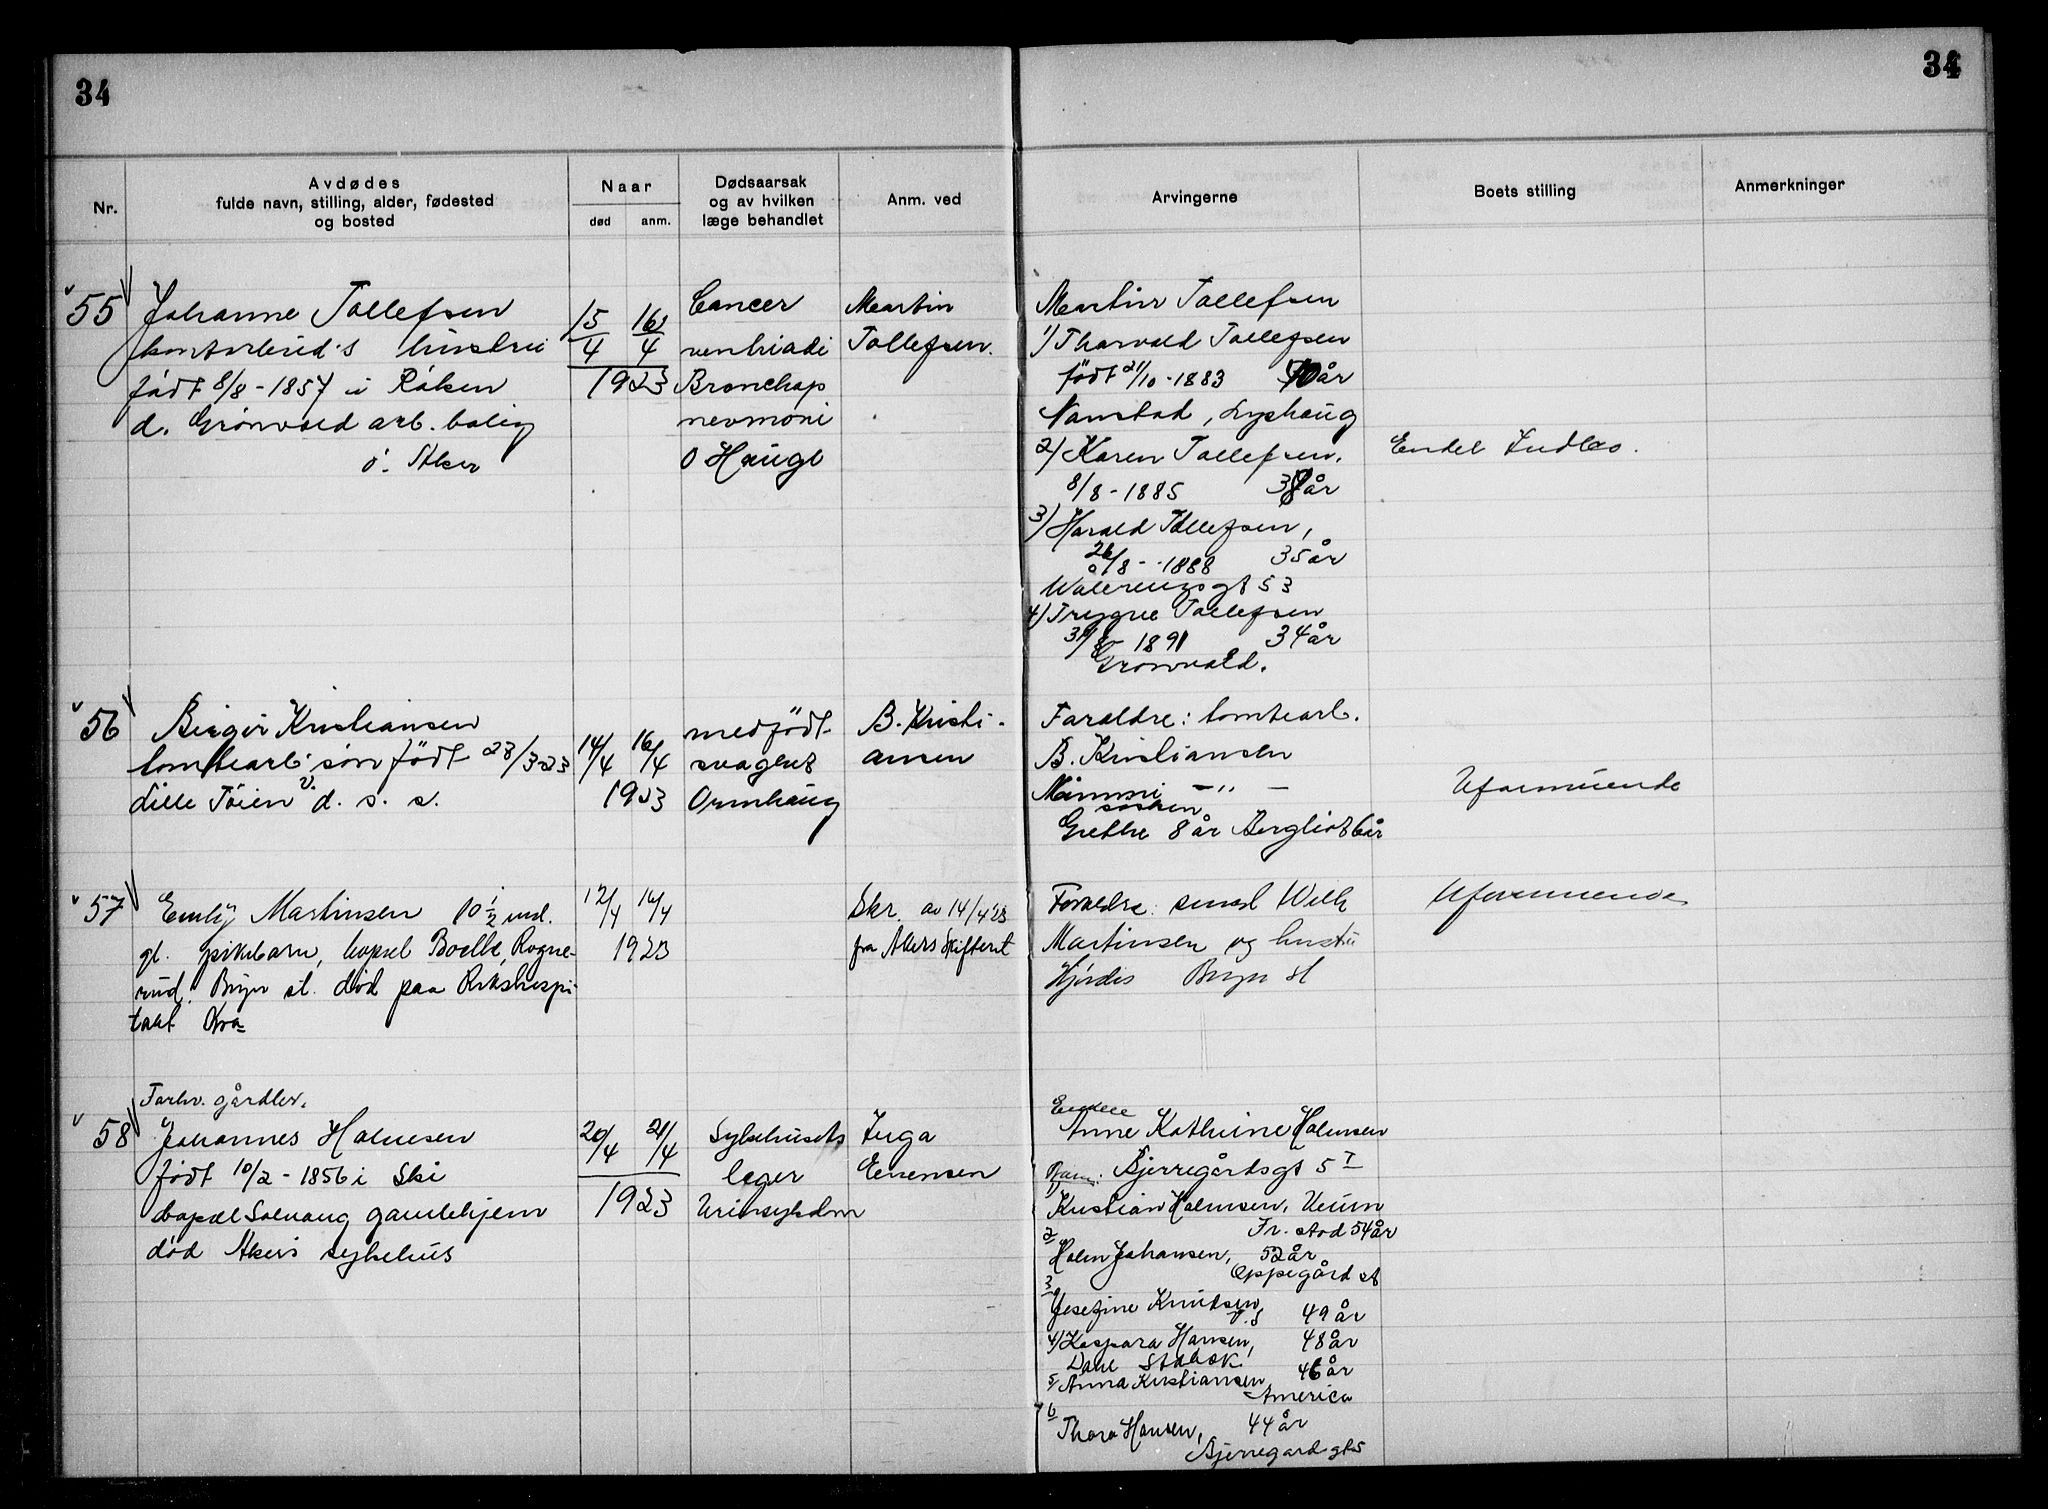 34
34
Nr.
Avdødes
fulde navn, stilling, alder, fødested
og bosted
Naar
død
anm.
Dødsaarsak
og av hvilken
læge behandlet
Anm. ved
Arvingerne
Boets stilling
Anmerkninger
55
Johanne Tollefsen
kontorbud's hustru
født 8/8 - 1857 i Røken
d. Grønvold arb. bolig
Aker
15/4
16/4
1923
Cancer
ventriculi
Bronchop
nevmoni
O Hauge
Martin
Tollefsen.
Martin Tollefsen
1) Thorvald Tollefsen
født 21/10 - 1883 40 år
2) Karen Tollefsen.
8/8 - 1885 år
3) Harald Tollefsen,
26/8 - 1888 35 år
Walerengsgt 53
4) Trygve Tollefsen
1891 34 år
Grønvold.
Endel Indbo.
56
Birger Kristiansen
tomtearb. søn født 28/3-23
Lille Tøien v. d. s. s.
14/4
16/4
1923
medfødt
svaghet
Ormhaug
B. Kristi-
ansen
Foraldre: tomtearb.
B. Kristiansen
Mimmi - " -
søsken
Grethe 8 år Bergliot 6 år
Uformuende
57
Emly Martinsen 10 1/2 md.
gl. pikebarn, bopæl Boelle, Rogne-
rud, Bryn st. død paa Rikshospi-
talet Kra=
12/4
16/4
1923
Skr. av 14/4 23
fra Akers Skifteret
Foreldre: smed Wilh
Martinsen og hustru
Hjørdis Bryn st
Uformuende
58
Forhv. gårdbr.
Johannes Holmsen
født 10/2 - 1856 i Ski
bopæl Solhaug gamlehjem
død Akers sykehus
20/4
21/4
1923
Sykehusets
læger
Urinsykdom
Inga
Evensen
Enke
Anne Kathrine Holmsen
Barn: Bjerregårdsgt 5 I
1) Kristian Holmsen,
54 år
2 Holm Johansen, 52 år
Oppegård st
3
Josefine Knutsen 49 år
4) Kaspara Hansen, 48 år
Stabæk
5) Anna Kristiansen 46 år
America
6
Thora Hansen, 44 år
Bjerregard gt 5